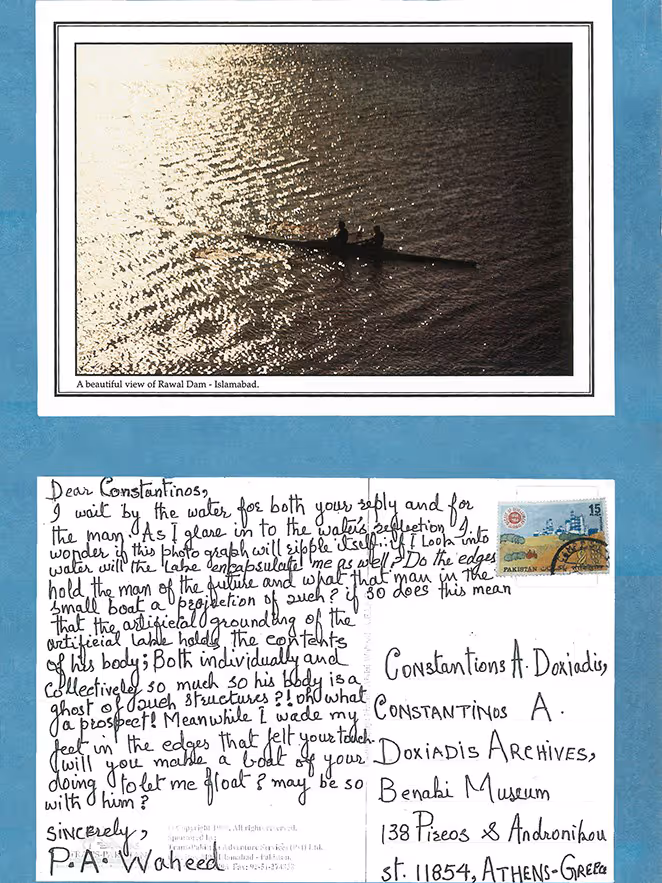 A beautiful view of Rawal Dam - Islamabad.
Dear Constantinos,
I wait by the water for both your reply and for
the man. As I glare in to the water's reflection I
wonder if this photo graph will ripple itself... if I Look into
water will the Lake encapsulate me as well? Do the edges
hold the man of the future and what that man in the
small boat a projection of such? if so does this mean
that the artificial grounding of the
artificial lake holds the contents
of his body; Both individually and
Collectively so much so his body is a
ghost of such structures?! oh what
a prospect! Meanwhile I wade my
feet in the edges that felt your touch.
will you make a boat of your
doing to let me float? may be so
with him?
SINCERELY,
P.A. Waheed
15
PAKISTAN
Constantions A. Doxiadis,
CONSTANTINOS A.
DOXIADIS ARCHIVES,
Benaki Museum
138 Pireos & Andronikou
st. 11854, ATHENS-GREECE
All rights reserved.
Sponsored by:
Trans-Pakistan Adventure Services (PVT) Ltd.
Islamabad - Pakistan.